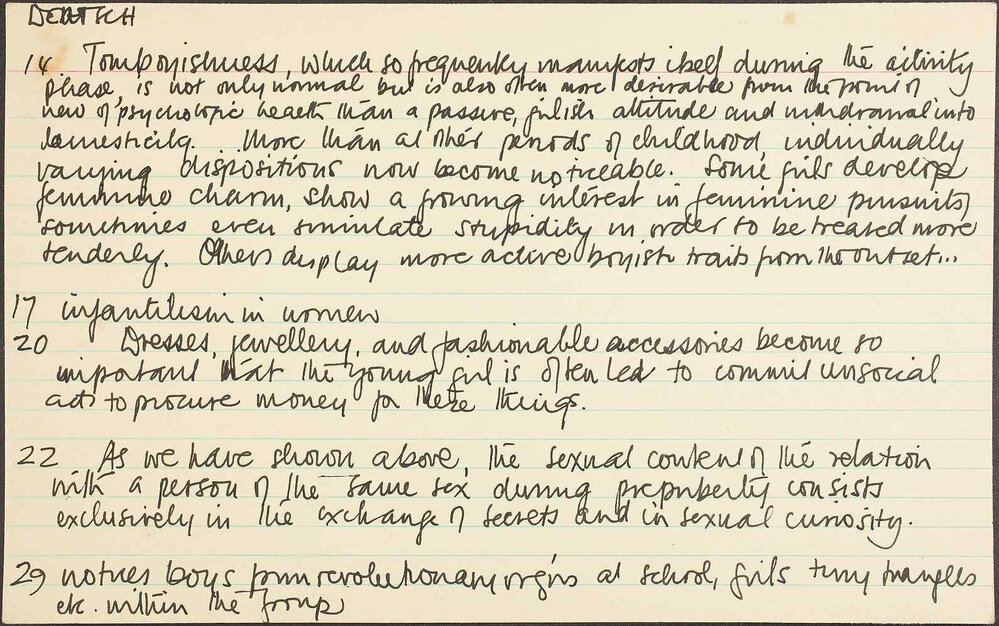 DEUTSCH
14 Tomboyishness, which so frequently manifests itself during the activity
phase, is not only normal but is also often more desirable from the point of
view of psychologic health than a passive, girlish attitude and withdrawal into
domesticity. ... More than at other periods of childhood, individually
varying dispositions now become noticeable. Some girls develop
feminine charm, show a growing interest in feminine pursuits,
sometimes even simulate stupidity in order to be treated more
tenderly. Others display more active boyish traits from the outset...
17 infantilism in women
20 Dresses, jewellery, and fashionable accessories become so
important that the young girl is often led to commit unsocial
acts to procure money for these things.
22 As we have shown above, the sexual content of the relation
with a person of the same sex during prepuberty consists
exclusively in the exchange of secrets and in sexual curiosity.
29 notices boys form revolutionary orgns at school, girls tiny triangles
etc. within the group